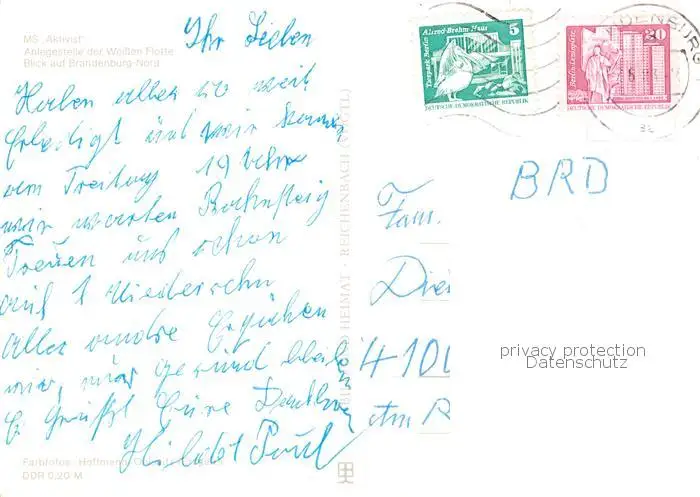 MS „Aktivist"
Anlegestelle der Weißen Flotte
Blick auf Brandenburg-Nord
Ihr Lieben
Haben alles so weit
Erledigt und wir
am Freitag 19 Uhr
wir warten Bahnsteig
Freuen uns schon
auf 1 Wiedersehn
alles andre
wir, nur gesund bleiben
Es Grüßt Eure
Hilde + Paul
Farbfotos: Hoffmann
DDR 0,20 M
BILD UND HEIMAT · REICHENBACH (VOGTL)
5
Alfred-Brehm-Haus
Tierpark Berlin
DEUTSCHE DEMOKRATISCHE REPUBLIK
20
Berlin, Leninplatz
DEUTSCHE DEMOKRATISCHE REPUBLIK
DENBURG
BRD
Fam.
Diet
410
Am R
privacy protection
Datenschutz